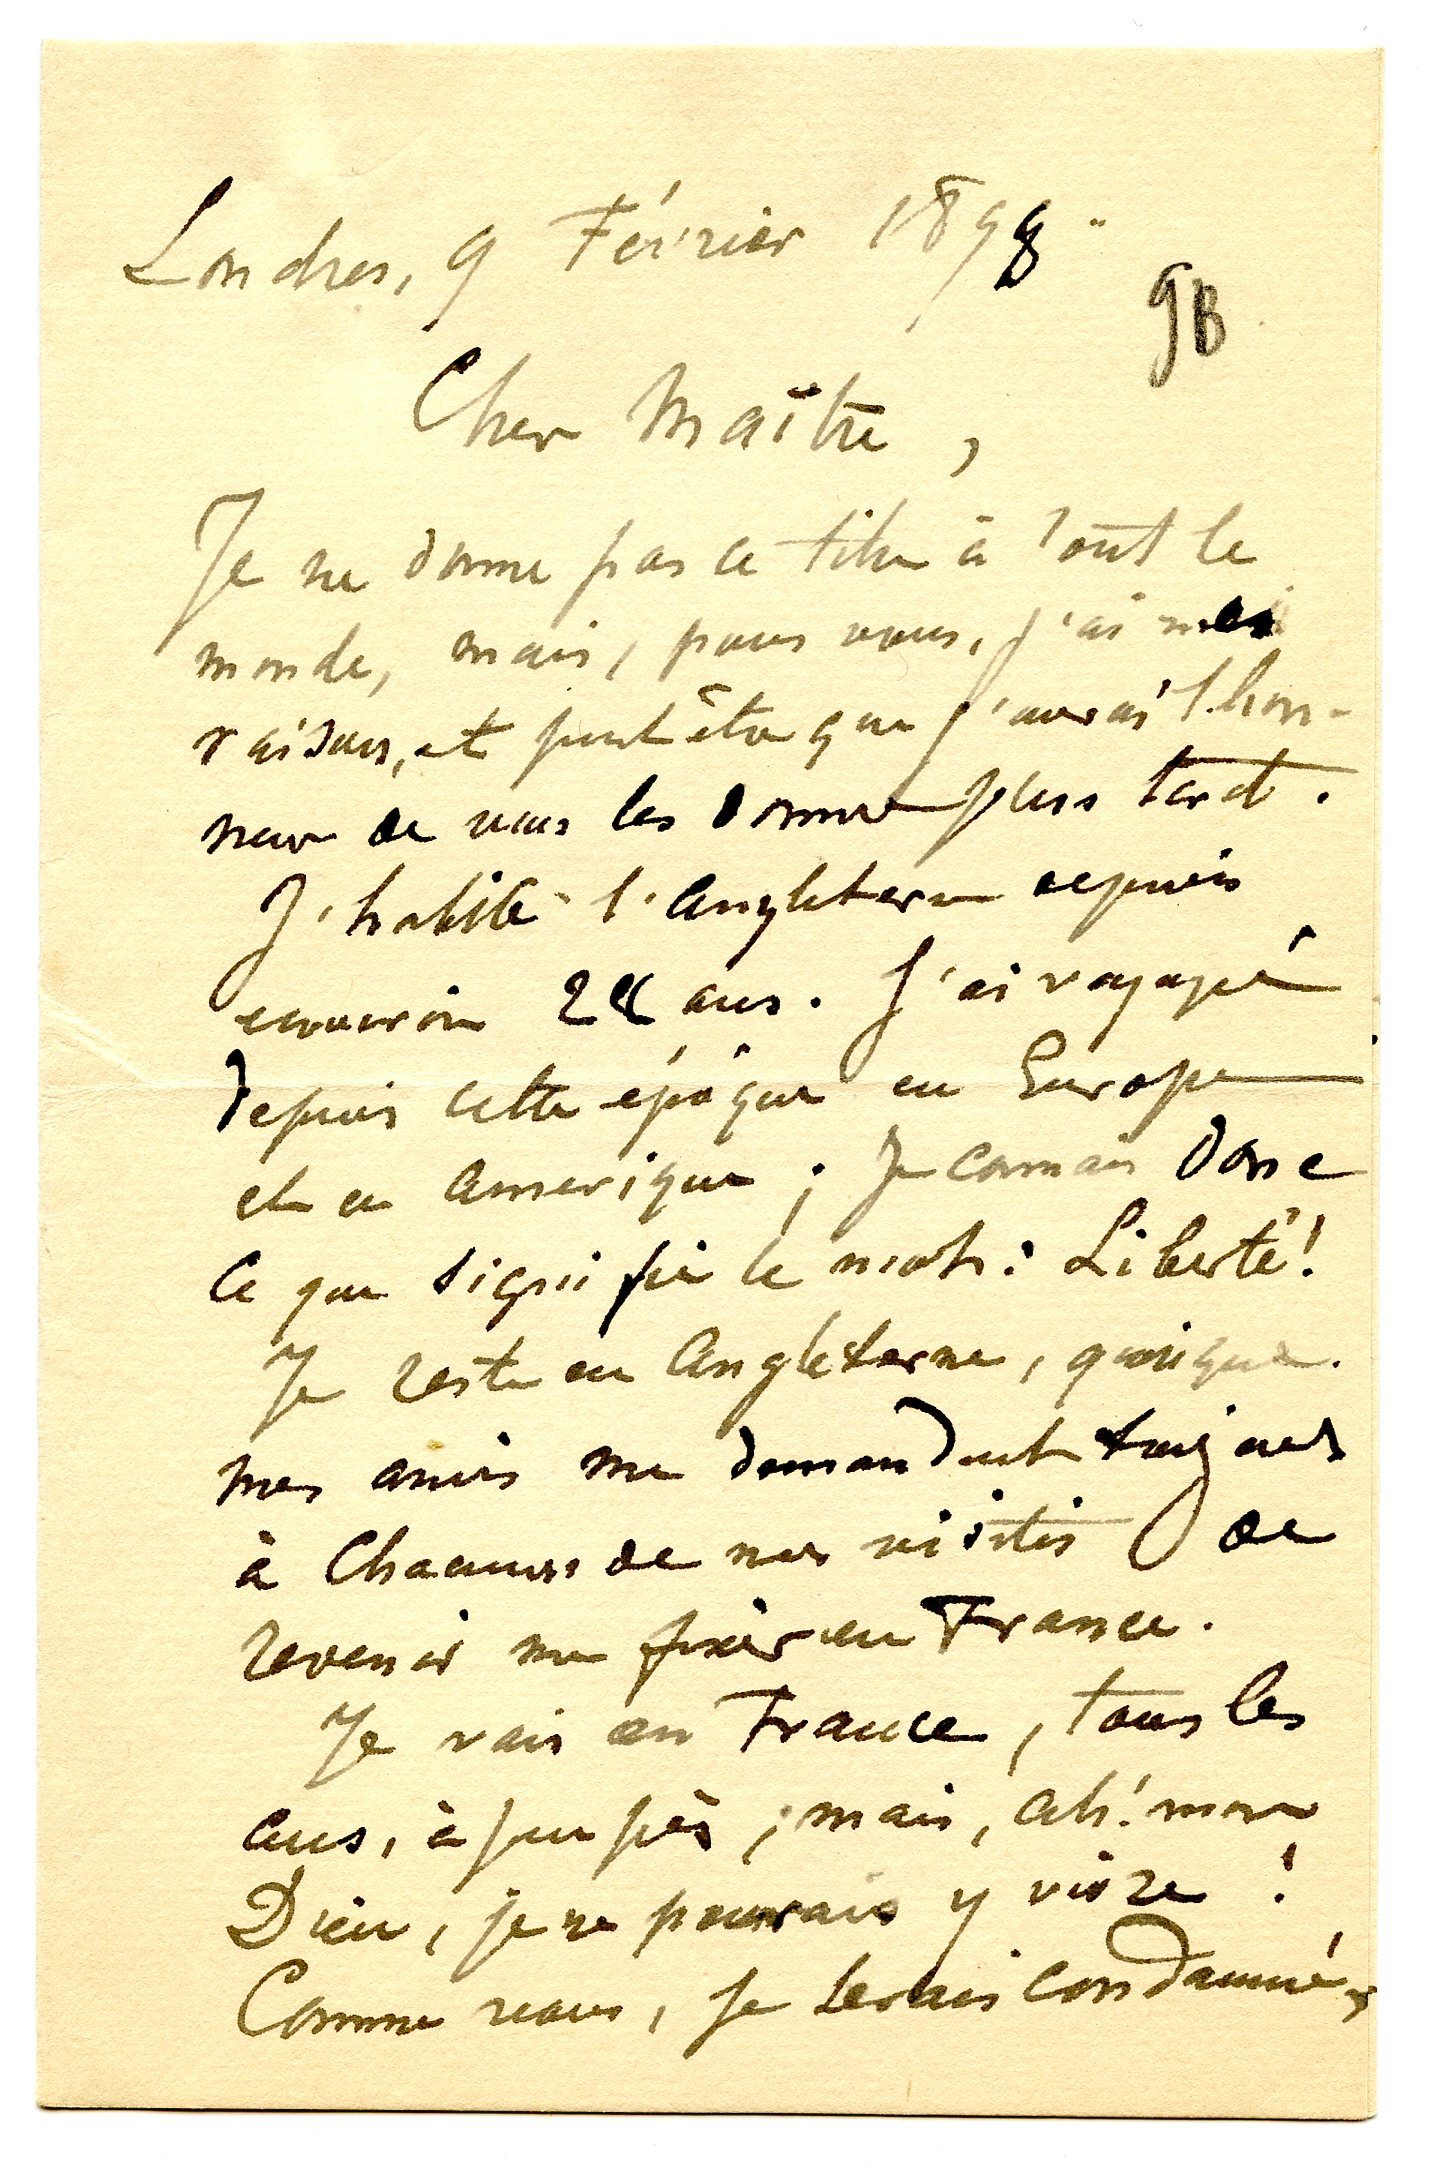 Londres, 9 Février 1898
GB
Cher Maître,
Je ne donne pas ce titre à tout le
monde, mais, pour vous, j'ai mes
raisons, et peut être que j'aurai l'hon-
neur de vous les donner plus tard.
J'habite l'Angleterre depuis
environ 28 ans. J'ai voyagé
depuis cette époque en Europe
et en Amérique ; je connais donc
ce que signifie le mot : Liberté !
Je reste en Angleterre, quoique
mes amis me demandent toujours
à chacune de mes visites de
revenir me fixer en France.
Je vais en France, tous les
ans, à peu près ; mais, ah ! mon
Dieu, je ne pourrais y vivre !
Comme vous, je serais condamné,